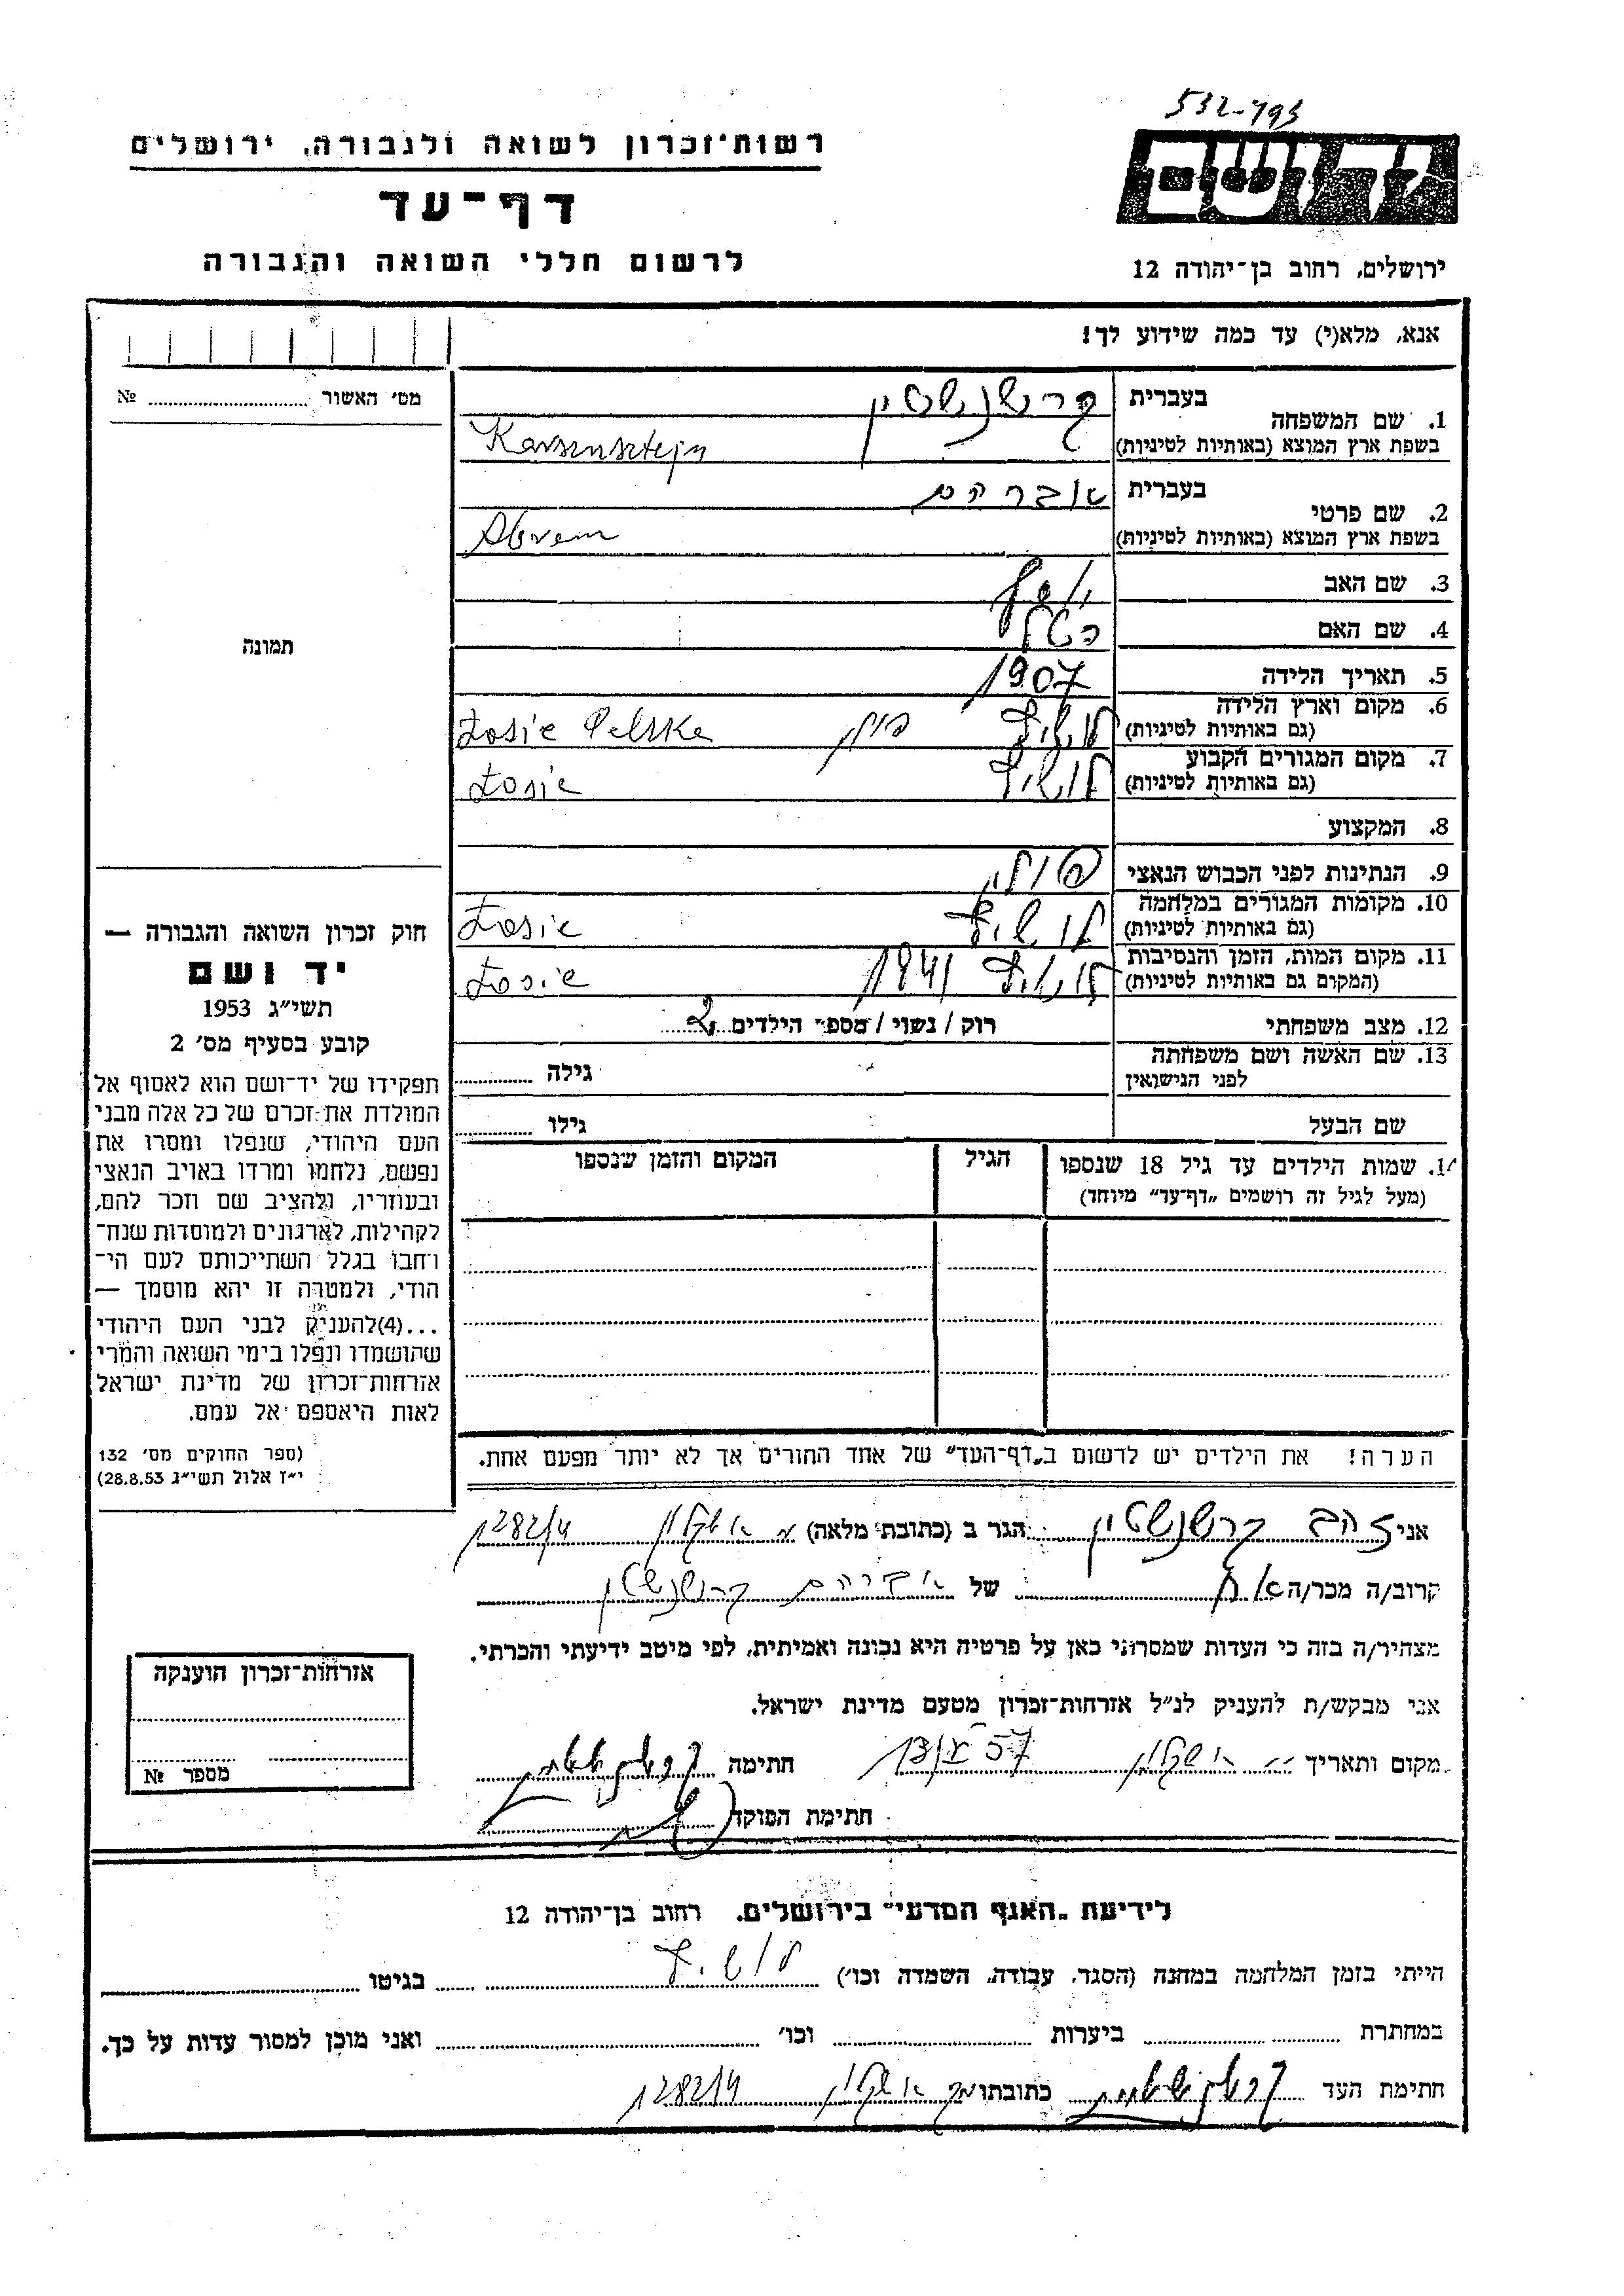 532-793
רשות-זכרון לשואה ולגבורה, ירושלים
דף-עד
לרשום חללי השואה והגבורה
יד ושם
ירושלים, רחוב בן-יהודה 12
אנא, מלא(י) עד כמה שידוע לך!
מס׳ האשור № ........
1. שם המשפחה
בעברית קרשנשטין
בשפת ארץ המוצא (באותיות לטיניות) Karsensztejn
2. שם פרטי
בעברית אברהם
בשפת ארץ המוצא (באותיות לטיניות) Abram
3. שם האב יוסף
4. שם האם
5. תאריך הלידה 1907
6. מקום וארץ הלידה לושיץ פולין Łosic Polska
(גם באותיות לטיניות)
7. מקום המגורים הקבוע לושיץ Łosic
(גם באותיות לטיניות)
8. המקצוע
9. הנתינות לפני הכבוש הנאצי פולין
10. מקומות המגורים במלחמה לושיץ Łosic
(גם באותיות לטיניות)
11. מקום המות, הזמן והנסיבות לושיץ 1941 Łosic
(המקום גם באותיות לטיניות)
12. מצב משפחתי רוק / נשוי / מספר הילדים 2
13. שם האשה ושם משפחתה
לפני הנישואין
גילה ........
שם הבעל גילו ........
14. שמות הילדים עד גיל 18 שנספו הגיל המקום והזמן שנספו
(מעל לגיל זה רושמים „דף-עד" מיוחד)
הערה! את הילדים יש לרשום ב„דף-העד" של אחד ההורים אך לא יותר מפעם אחת.
תמונה
חוק זכרון השואה והגבורה —
יד ושם
תשי״ג 1953
קובע בסעיף מס׳ 2
תפקידו של יד-ושם הוא לאסוף אל
המולדת את זכרם של כל אלה מבני
העם היהודי, שנפלו ומסרו את
נפשם, נלחמו ומרדו באויב הנאצי
ובעוזריו, ולהציב שם וזכר להם,
לקהילות, לארגונים ולמוסדות שנח-
רבו בגלל השתייכותם לעם הי-
הודי, ולמטרה זו יהא מוסמך —
...(4) להעניק לבני העם היהודי
שהושמדו ונפלו בימי השואה והמרי
אזרחות-זכרון של מדינת ישראל
לאות היאספם אל עמם.
(ספר החוקים מס׳ 132
י״ז אלול תשי״ג 28.8.53)
אני זהב קרשנשטין הגר ב (כתובת מלאה) אשקלון 1282/4
קרוב/ה מכר/ה אח של אברהם קרשנשטין
מצהיר/ה בזה כי העדות שמסרתי כאן על פרטיה היא נכונה ואמיתית, לפי מיטב ידיעתי והכרתי.
אני מבקש/ת להעניק לנ״ל אזרחות-זכרון מטעם מדינת ישראל.
מקום ותאריך אשקלון חתימה
חתימת הפוקד
אזרחות-זכרון הוענקה
מספר №
לידיעת „האגף המדעי" בירושלים, רחוב בן-יהודה 12
הייתי בזמן המלחמה במחנה (הסגר, עבודה, השמדה וכו׳) לושיץ בגיטו ........
במחתרת ........ ביערות ........ וכו׳ ........ ואני מוכן למסור עדות על כך.
חתימת העד כתובתו אשקלון 1282/4